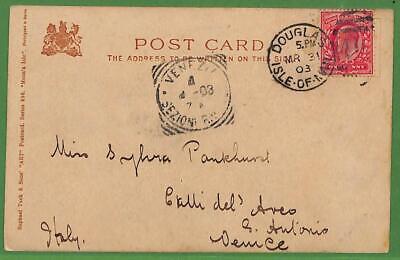 POST CARD
THE ADDRESS ONLY TO BE WRITTEN ON THIS SIDE
DOUGLAS
5.PM
MR 31
03
ISLE-OF-MAN
VENEZIA
4
4-03
Raphael Tuck & Sons' "ART" Postcard. Series "Mona's Isle"
Miss Sylvia Pankhurst
Calli del Arco
S. Antonio
Venice
Italy.